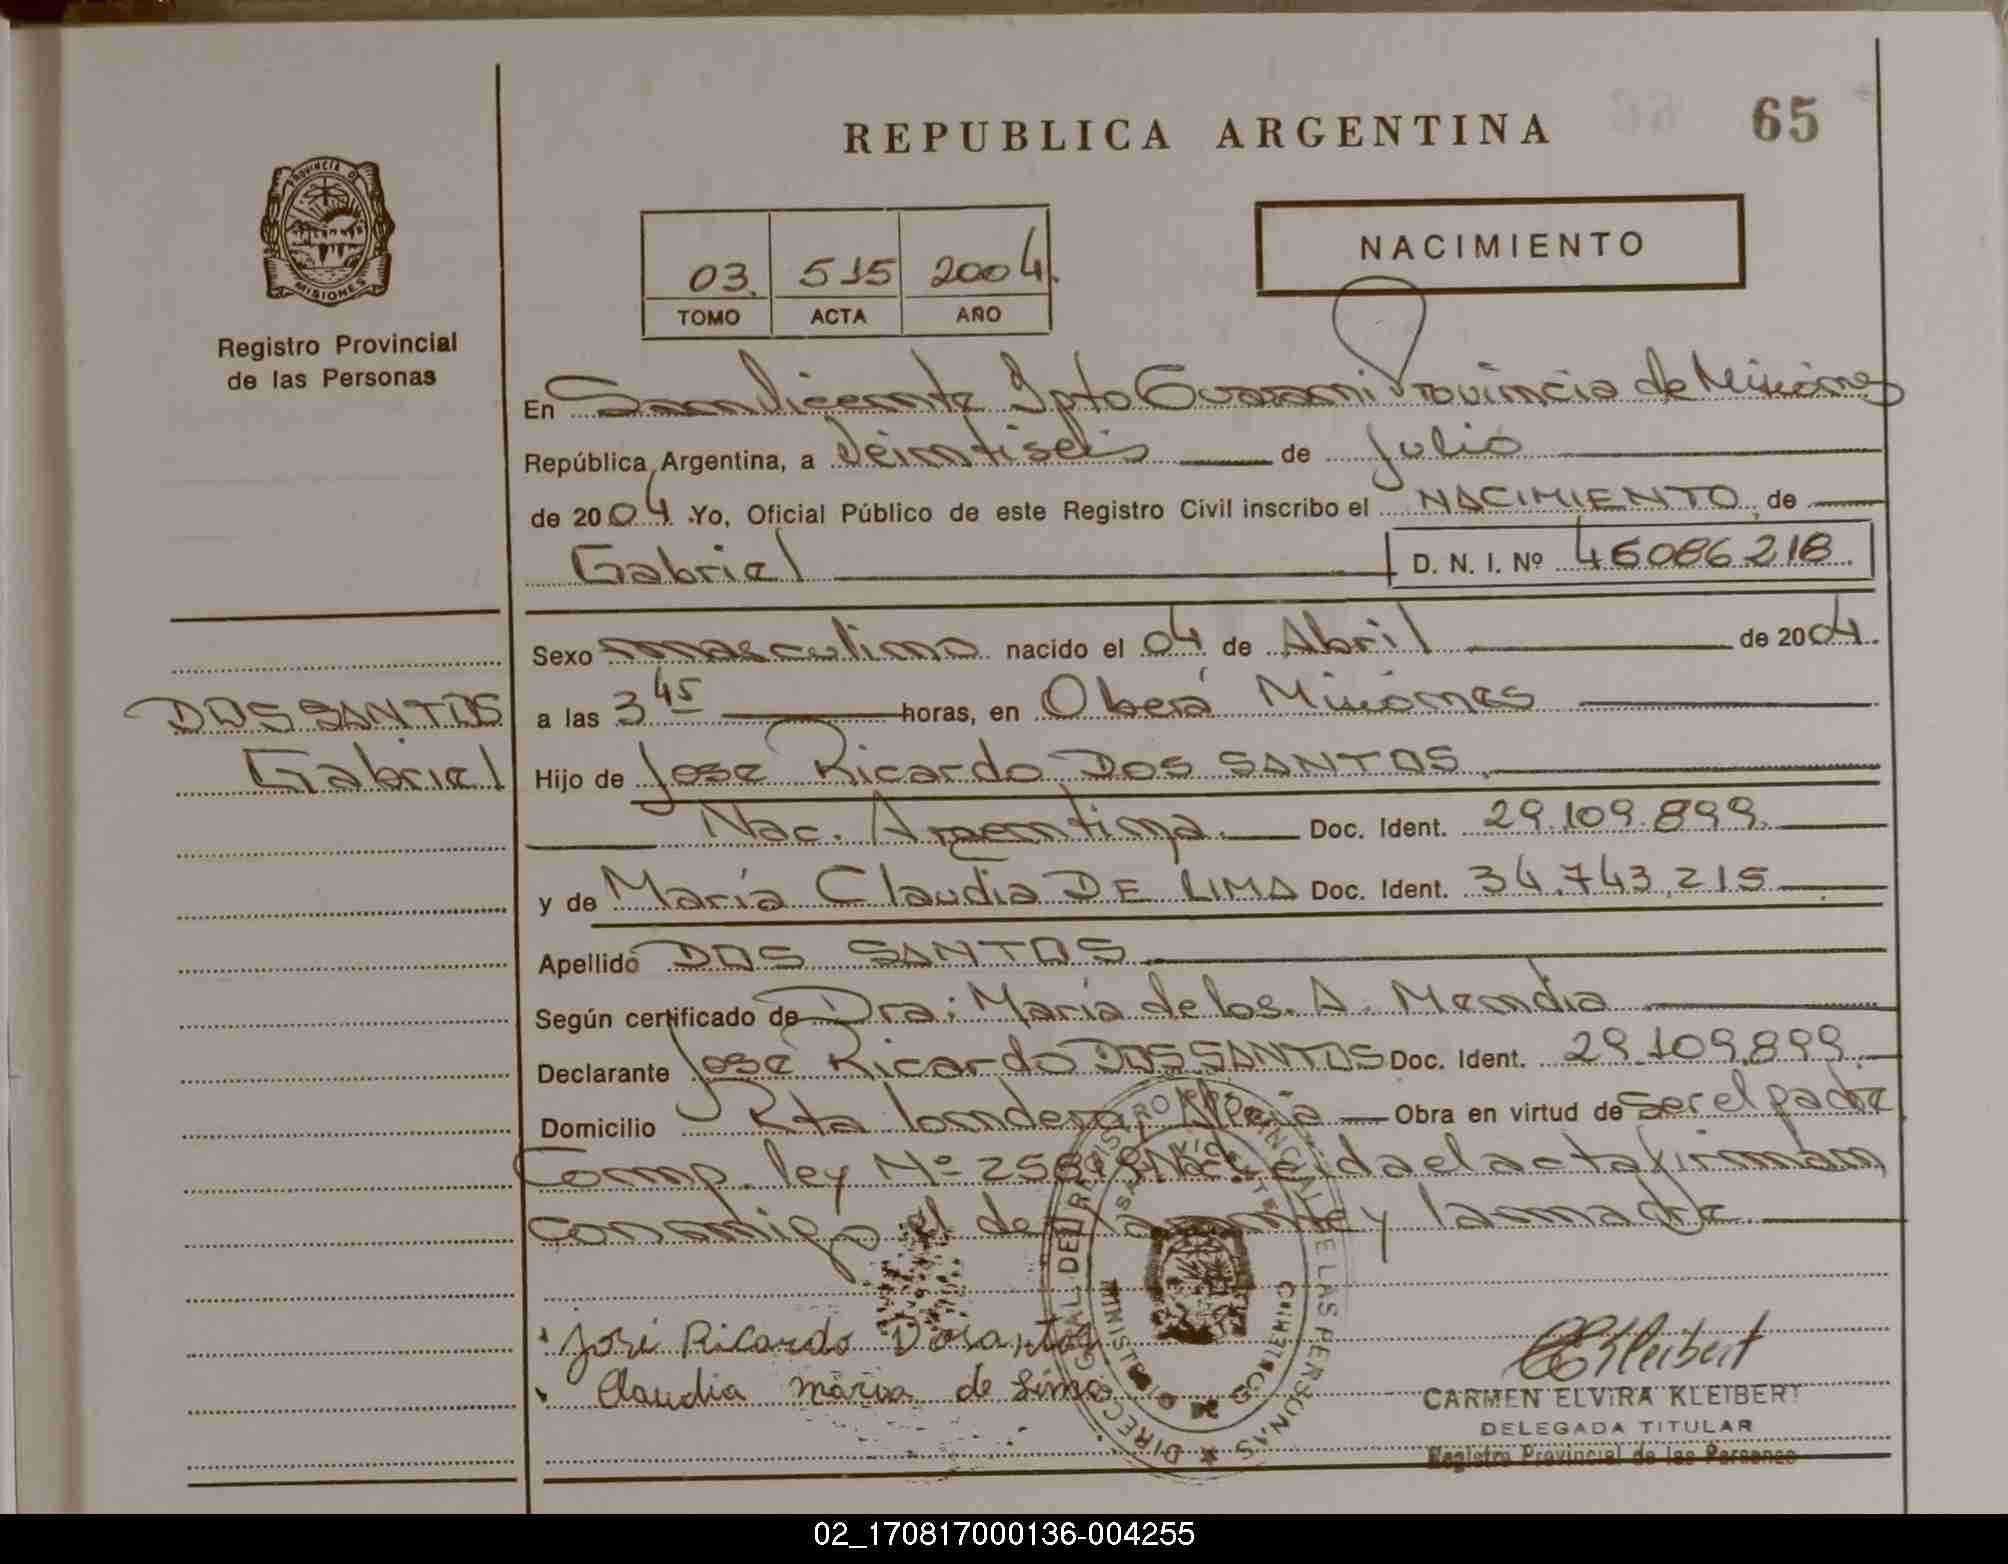 REPUBLICA ARGENTINA
65
PROVINCIA DE
MISIONES
Registro Provincial
de las Personas
03. 515 2004.
TOMO ACTA AÑO
NACIMIENTO
En San Vicente Dpto Guarani Provincia de Misiones
República Argentina, a Veintiseis de Julio
de 2004. Yo, Oficial Público de este Registro Civil inscribo el NACIMIENTO, de
Gabriel D. N. I. Nº 46086218.
Sexo masculino nacido el 04 de Abril de 2004.
DOS SANTOS
Gabriel
a las 3 45 horas, en Oberá Misiones
Hijo de Jose Ricardo DOS SANTOS
Nac. Argentina. Doc. Ident. 29.109.899.
y de María Claudia DE LIMA Doc. Ident. 34.743.215
Apellido DOS SANTOS
Según certificado de Dra: María de los. A. Mendia
Declarante Jose Ricardo DOS SANTOS Doc. Ident. 29.109.899
Domicilio Rta londero, Alegia Obra en virtud de ser el padre
Comp. ley Nº Leida el acta firman
conmigo el declarante y la madre
José Ricardo Dosantos
Claudia maria de Lima
DIRECC GRAL DEL REGISTRO PROVINCIAL DE LAS PERSONAS
SAN VICENTE
CKleibert
CARMEN ELVIRA KLEIBERT
DELEGADA TITULAR
Registro Provincial de las Personas
02_170817000136-004255